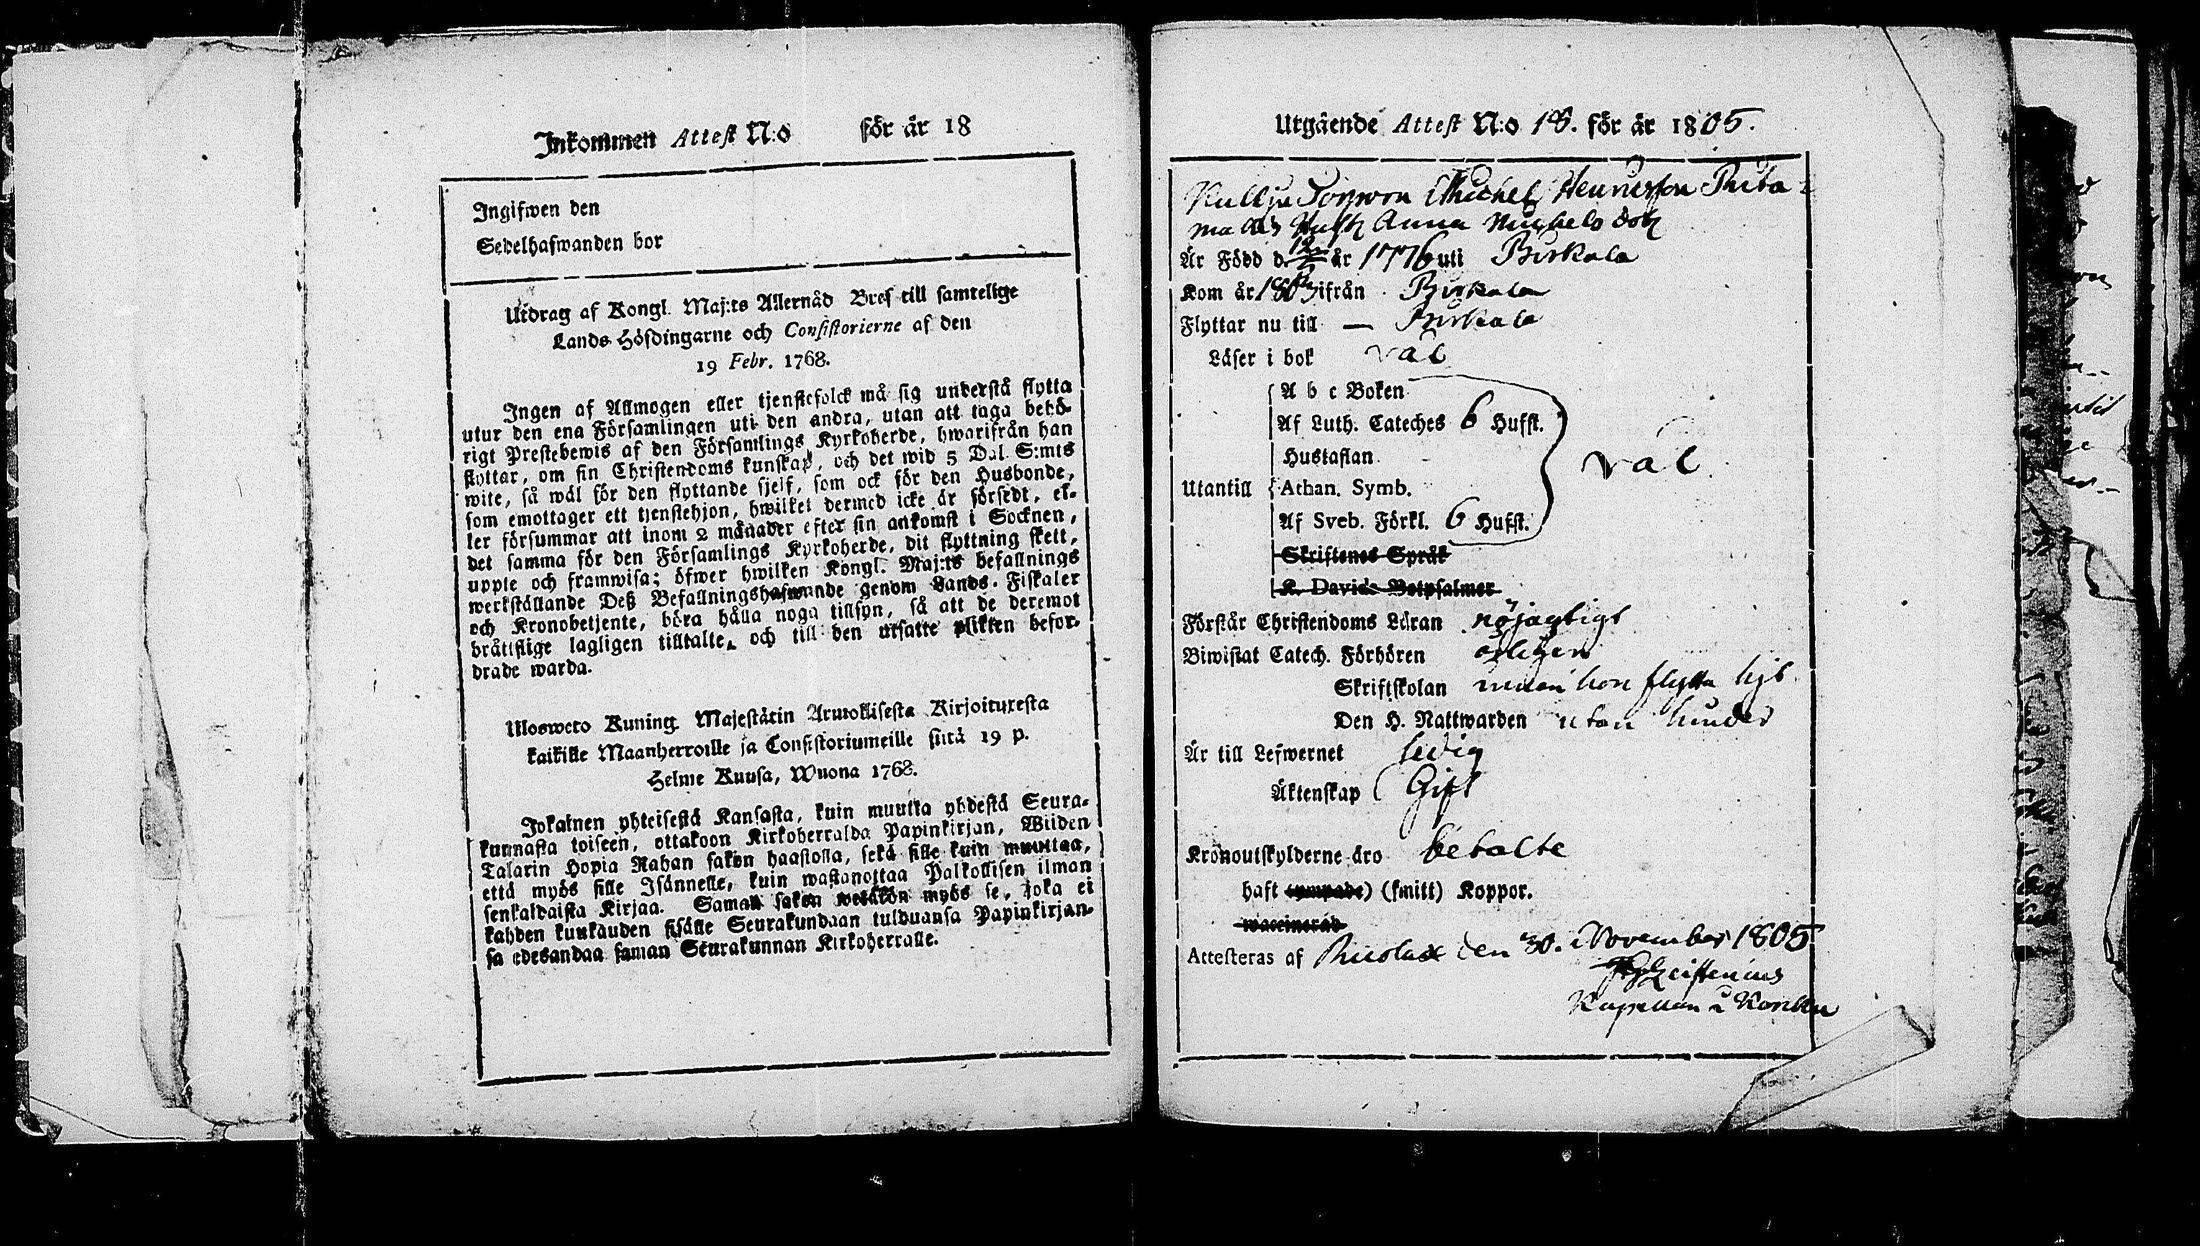 Inkommen Attest N:o för år 18
Ingifwen den
Sedelhafwanden bor
Utdrag af Kongl. Maj:ts Allernåd Bref till samtelige
Lands-Höfdingarne och Consistorierne af den
19 Febr. 1768.
Ingen af Allmogen eller tjenstefolck må sig understå flytta
utur den ena Församlingen uti den andra, utan att taga behö-
rigt Prestebewis af den Församlings Kyrkoherde, hwarifrån han
flyttar, om sin Christendoms kunskap, och det wid 5 Dal. S:mts
wite, så wäl för den flyttande sjelf, som ock för den Husbonde,
som emottager ett tjenstehjon, hwilket dermed icke är försedt, el-
ler försummar att inom 2 månader efter sin ankomst i Socknen,
det samma för den Församlings Kyrkoherde, dit flyttning skett,
uppte och framwisa; öfwer hwilken Kongl. Maj:ts befallnings
werkställande Deß Befallningshafwande genom Lands-Fiskaler
och Kronobetjente, böra hålla noga tillsyn, så att de deremot
bråttslige lagligen tilltalte, och till den utsatte plikten befor-
drade warda.
Ulosweto Kuning. Majestätin Armollisesta Kirjoituxesta
kaikille Maanherroille ja Consistoriumeille siitä 19 p.
Helme Kuusa, Wuona 1768.
Jokainen yhteisestä Kansasta, kuin muutta yhdestä Seura-
kunnasta toiseen, ottakoon Kirkoherralda Papinkirjan, Wiiden
Talarin Hopia Rahan sakon haastolla, sekä sille kuin muuttaa,
että myös sille Isännelle, kuin wastanottaa Palkollisen ilman
senkaldaista Kirjaa. Saman sakon wetäkön myös se, joka ei
kahden kuukauden sisälle Seurakundaan tulduansa Papinkirjan-
sa edesandaa saman Seurakunnan Kirkoherralle.
Utgående Attest N:o 18. för år 1805.
Michel Henricsson
Anna Michels dotr
Är Född d. 12 år 1776 uti Birkala
Kom år 1803 ifrån Birkala
Flyttar nu till — Birkala
Läser i bok väl
A b c Boken
Af Luth. Cateches 6 Hufst.
Hustaflan
väl
Utantill Athan. Symb.
Af Sveb. Förkl. 6 Hufst.
Skriftenes Språk
K. Davids Botpsalmer
Förstår Christendoms Läran nöjagtigt
Biwistat Catech. Förhören årligen
Skriftskolan innan hon flytta hit
Den H. Nattwarden utan hinder
Är till Lefwernet ledig
Äktenskap Gift
Kronoutskylderne äro betalte
haft (ympade) (smitt) Koppor.
waccinerad
Attesteras af den 30. November 1805
Kapellan i